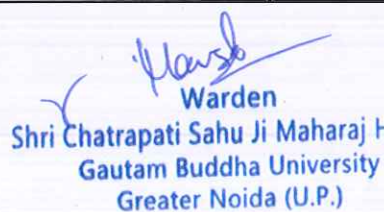 Warden
Shri Chatrapati Sahu Ji Maharaj H
Gautam Buddha University
Greater Noida (U.P.)